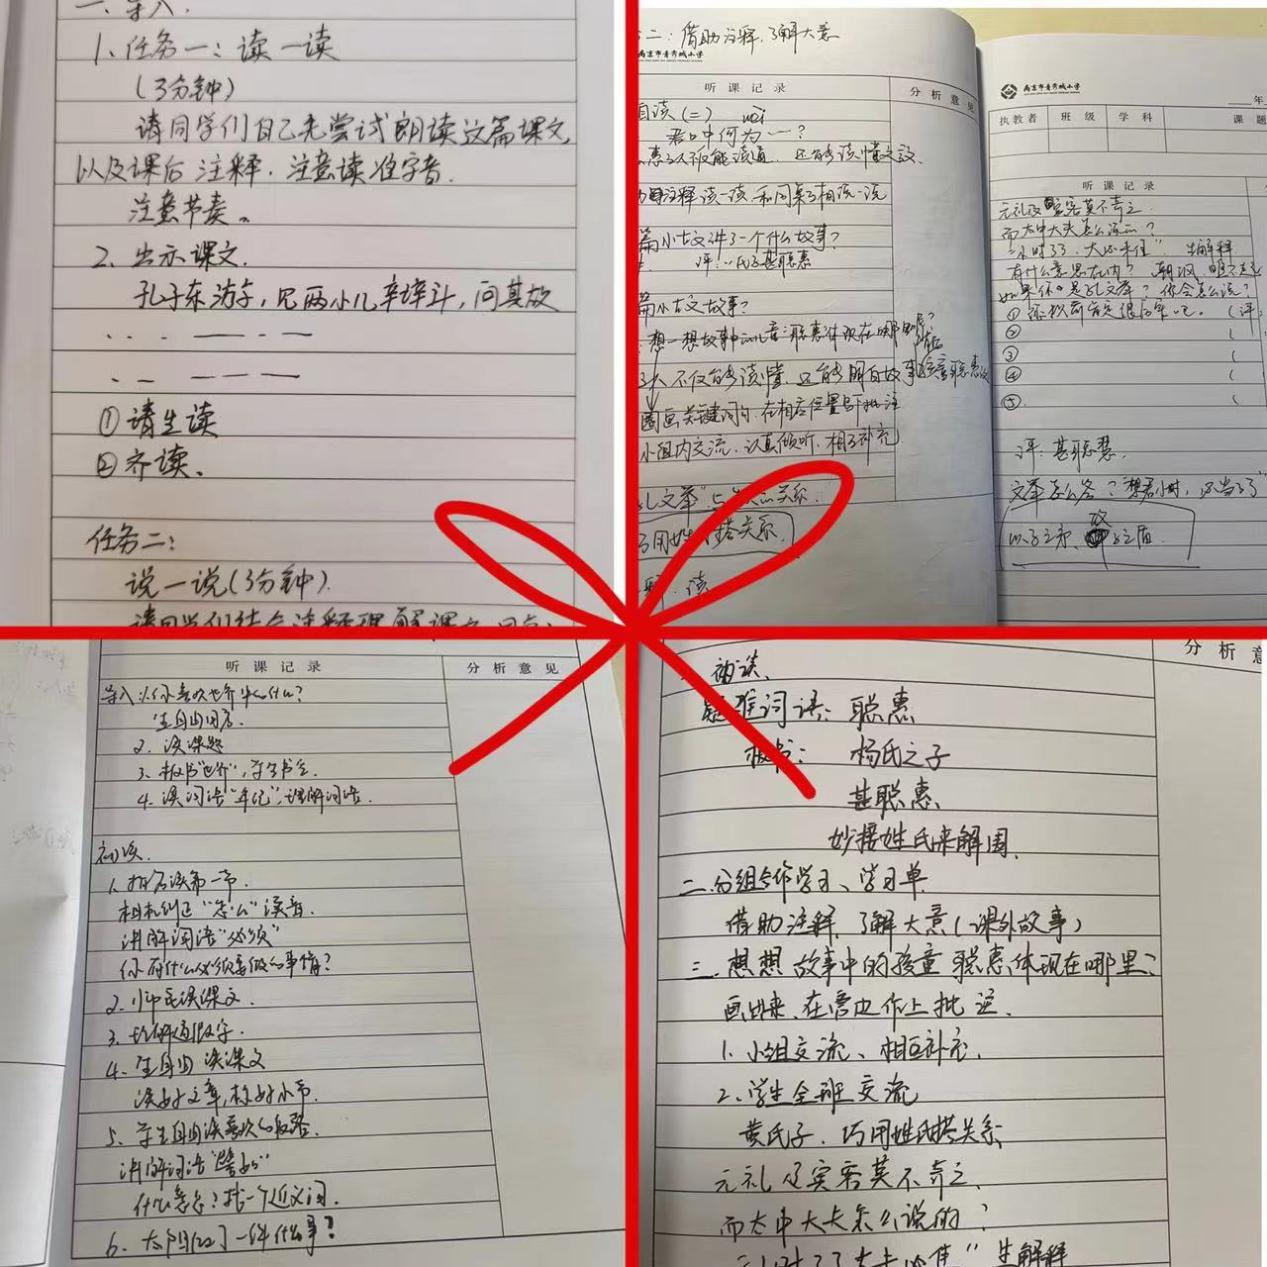 一、导入.
1、任务一：读一读
(3分钟)
请同学们自己先尝试朗读这篇课文,
以及课后注释,注意读准字音.
注意节奏。
2、出示课文.
孔子东游,见两小儿辩斗,问其故
①请生读
②齐读、
任务二:
说一说(3分钟).
请同学们结合注释理解课文
二:借助注释,了解大意
南京市青秀城小学
听课记录
分析意见
自读(二)
君口中何为一?
不仅能读通,还能读懂文议.
注释读一读,和同桌互相说一说
篇小古文讲了一个什么故事?
评:氏子甚聪惠
篇小古文故事?
想一想故事中儿童聪惠体现在哪
不仅能够读懂,还能够明白故事
圈画关键词句,在相应位置写批注
小组内交流,认真倾听,相互补充
孔文举"与 关系.
巧用姓氏搭关系.
读
南京市青秀城小学
年
执教者 班级 学科 课题
听课记录
元礼及宾客莫不奇之.
而太中大夫怎么说的?
"小时了了,大必未佳" 生解释
有什么意思在内?
如果你是孔文举?你会怎么说?
① (评:
② (
③ (
④ (
⑤ (
评:甚聪慧.
文举怎么答?"想君小时,必当了了"
以子之矛、攻子之盾.
听课记录
分析意见
导入:1.你喜欢世界 什么?
生自由回答.
2.读课题
3.板书"世界",学书空.
4.读词语"年纪",理解词语.
初读.
1.指名读第一节.
相机纠正"怎么"读音.
讲解词语"必须"
你有什么必须要做的事情?
2.师范读课文.
3.
4.生自由读课文
读好文章,标好小节.
5.学生自由读喜欢的段落.
讲解词语
什么意思?找一个近义词.
6. 一件什么事?
分析意见
初读、
疑难词语:聪惠
板书: 杨氏之子
甚聪惠
妙接姓氏来解围.
二.分组合作学习、学习单
借助注释,了解大意(课外故事)
三.想想故事中的孩童聪惠体现在哪里?
画出来、在旁边作上批注.
1.小组交流、相互补充.
2.学生全班交流
黄氏子.巧用姓氏搭关系
元礼及宾客莫不奇之.
而太中大夫怎么说的?
"小时了了大未必佳"生解释